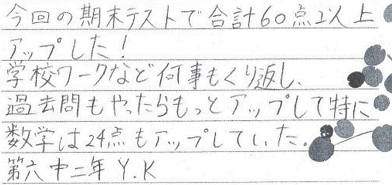 今回の期末テストで合計60点以上
アップした!
学校ワークなど何事もくり返し、
過去問もやったらもっとアップして特に
数学は24点もアップしていた。
第六中二年 Y.K